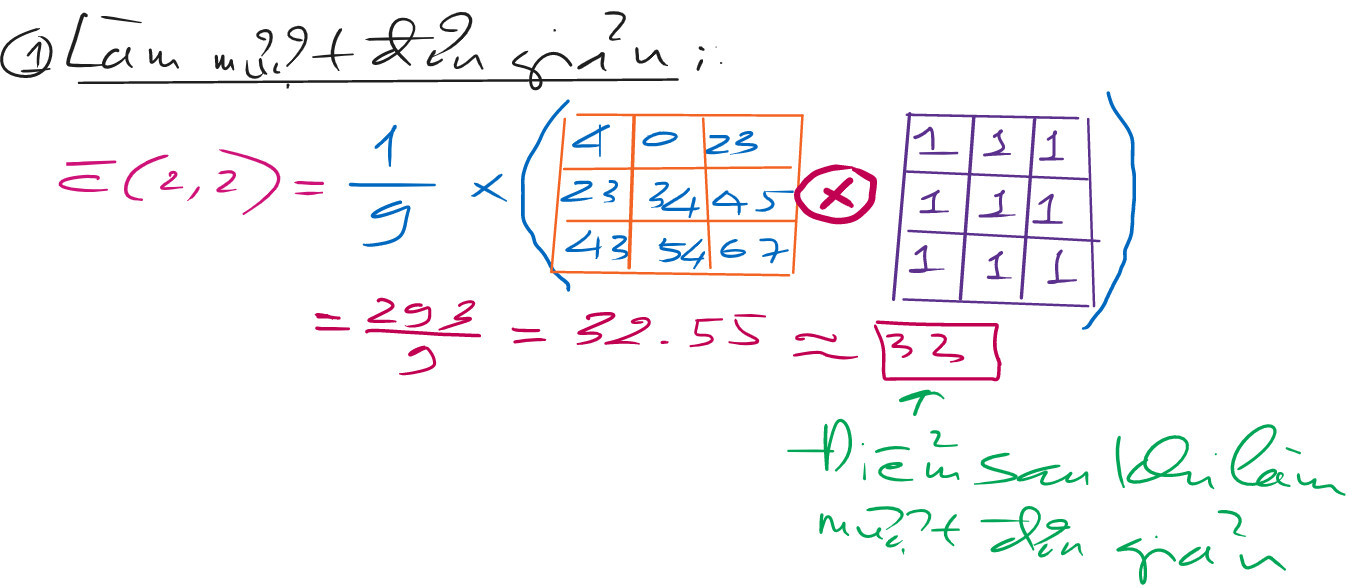 ① Làm mượt đơn giản:
E̅(2,2) = 1/9 × ( 4 0 23 ⊗ 1 1 1
23 34 45 1 1 1
43 54 67 1 1 1 )
= 293/9 = 32.55 ≈ 33
Điểm sau khi làm
mượt đơn giản